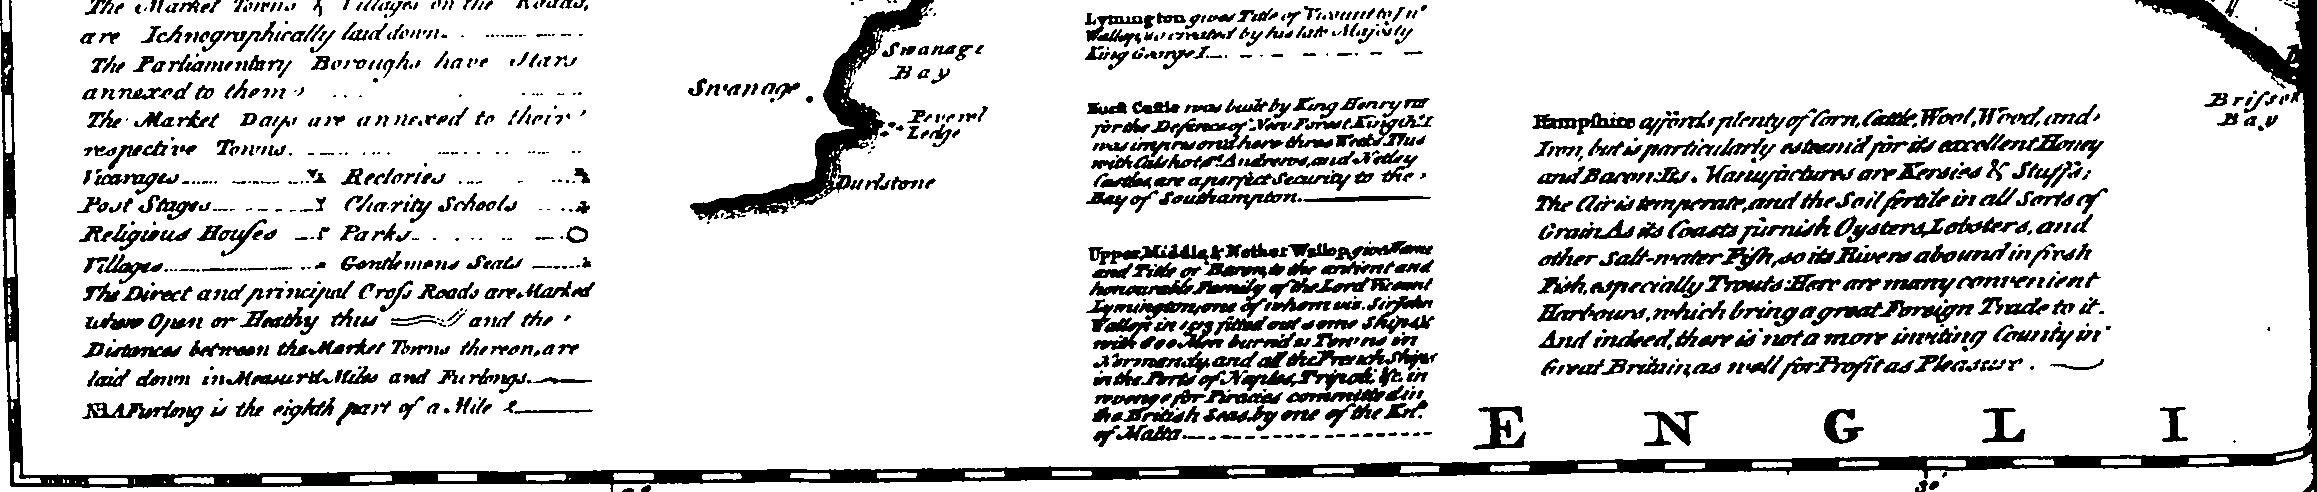 The Market Towns & Villages on the Roads,
are Ichnographically laid down.
The Parliamentary Boroughs have Stars
annexed to them
The Market Days are annexed to their
respective Towns.
Vicarages Rectories
Post Stages Charity Schools
Religious Houses Parks
Villages Gentlemens Seats
The Direct and principal Cross Roads are Marked
where Open or Heathy thus and the
Distances between the Market Towns thereon, are
laid down in Measur'd Miles and Furlongs.
NB. A Furlong is the eighth part of a Mile
Swanage
Swanage
Bay
Peverel
Ledge
Durlstone
Lymington gives Title of Viscount to Jn.º
Wallop, so created by his late Majesty
King George I.
Hurst Castle was built by King Henry VIII
for the Defence of New Forest. King Ch. I
was imprison'd here three Weeks. This
with Calshot, S.t Andrews, and Netley
Castles, are a perfect Security to the
Bay of Southampton.
Upper, Middle, & Nether Wallop, give Name
and Title of Baron, to the antient and
honourable Family of the Lord Viscount
Lymington, one of whom viz. Sir John
Wallop in 1513 fitted out some Ships, &
with 800 Men burn'd 21 Towns in
Normandy, and all the French Ships
in the Ports of Naples, Tripoli, &c. in
revenge for Piracies committed in
the British Seas, by one of the Kn.ts
of Malta
Hampshire affords plenty of Corn, Cattle, Wool, Wood, and
Iron, but is particularly esteem'd for its excellent Honey
and Bacon: Its Manufactures are Kersies & Stuffs;
The Air is temperate, and the Soil fertile in all Sorts of
Grain As its Coasts furnish Oysters, Lobsters, and
other Salt-water Fish, so its Rivers abound in fresh
Fish, especially Trouts: Here are many convenient
Harbours, which bring a great Foreign Trade to it.
And indeed, there is not a more inviting County in
Great Britain, as well for Profit as Pleasure.
Bay
E N G L I
30'